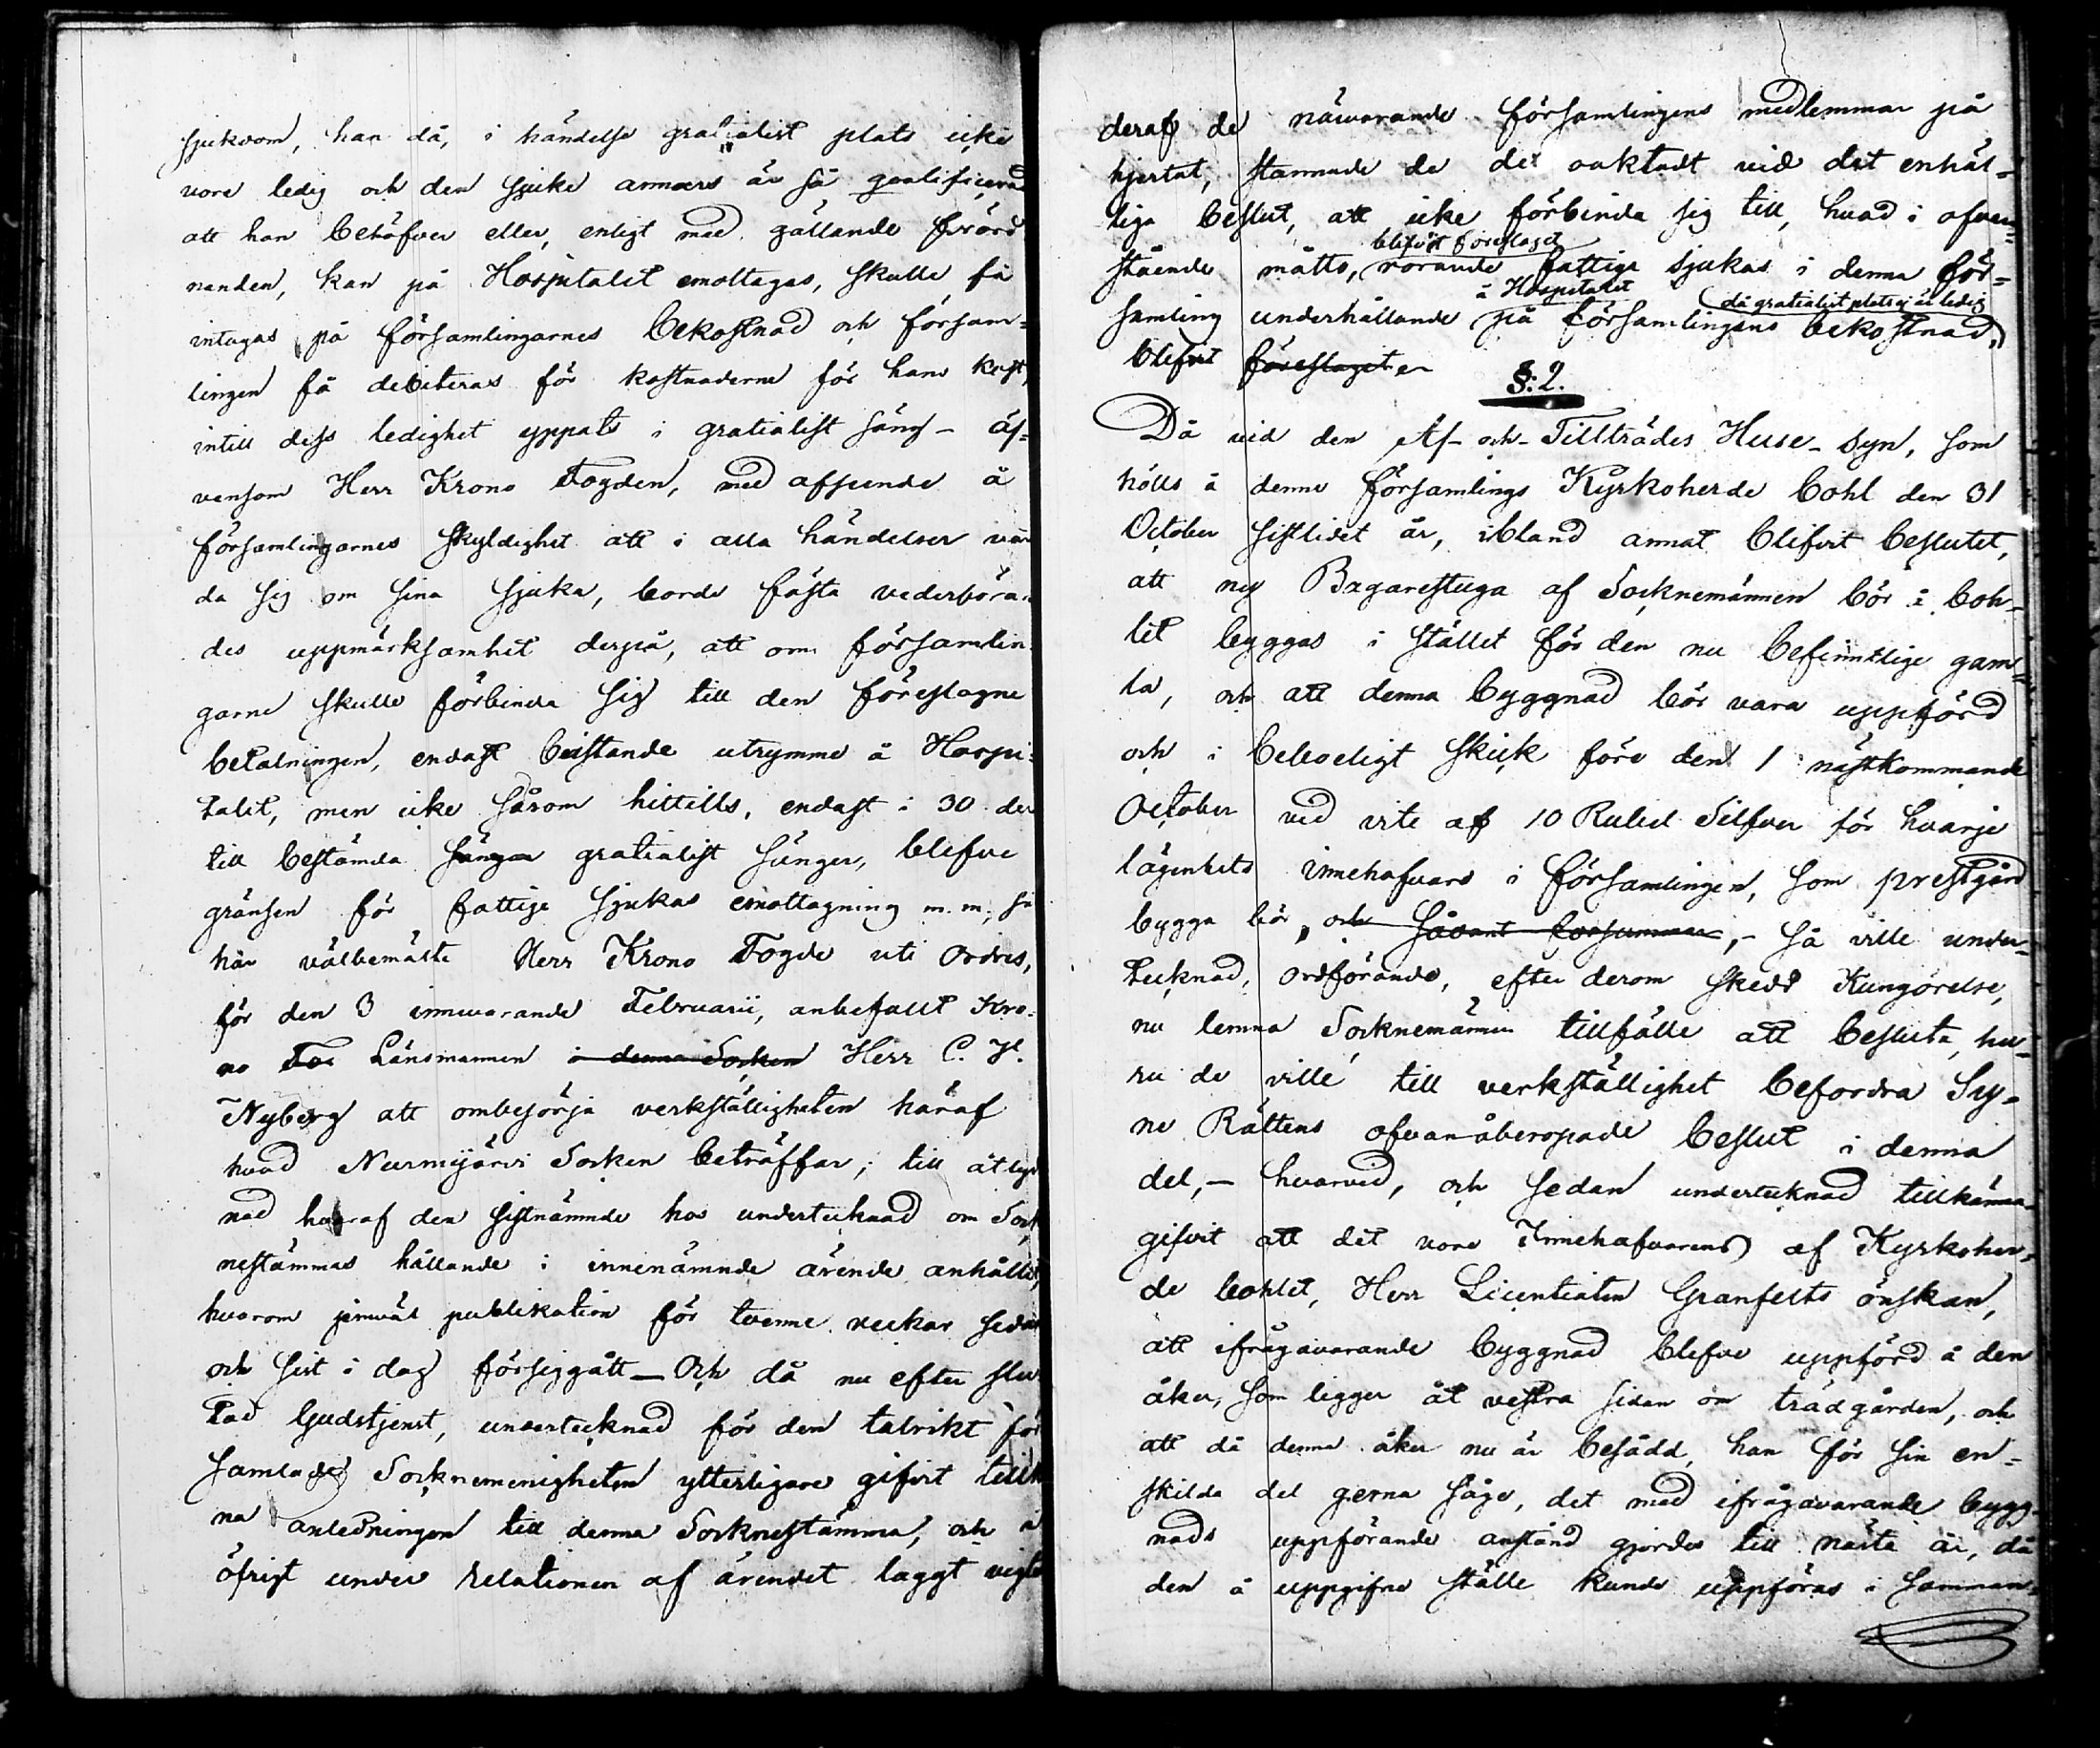 sjukdom, han då, i händelse gratialist plats icke
vore ledig och den sjuke annars är så qvalificerad
att han behöfver eller, enligt med gällande förord
nanden, kan på Hospitalet emottagas, skulle få
intagas på församlingarnes bekostnad och försam=
lingen få debiteras för kostnaderne för hans kost,
intill dess ledighet yppats i gratialist säng – äf=
vensom Herr Krono Fogden, med afseende å
församlingarnes skyldighet att i alla händelser vår
da sig om sina sjuka, borde fästa vederböran
des uppmärksamhet derpå, att om församlin
garne skulle förbinda sig till den föreslagne
betalningen, endast bristande utrymme å Hospi=
talet, men icke såsom hittills, endast i 30 der
till bestämda sängar gratialist sängar, blefve
gränsen för fattige sjukas emottagning m. m., så
har välbemälte Herr Krono Fogde uti Ordres,
för den 3 innevarande Februarii, anbefallt Kro=
no Fo Länsmannen i denna Socken Herr C. H.
Nyberg att ombesörja verkställigheten häraf
hvad Nurmijärvi Socken beträffar; till åtlyd
nad hvaraf den sistnämnde hos undertecknad om Sock
nestämmas hållande i innenämnde ärende anhållit,
hvarom jemväl publikation för tvenne veckor sedan
och sist i dag försiggått – Och då nu efter slu
tad Gudstjenst, undertecknad för den talrikt för
samlade Socknemenigheten ytterligare gifvit tillkä
na anledningen till denna Sockenstämma, och i
öfrigt under relationen af ärendet laggt vigt
deraf de närvarande församlingens medlemmar på
hjertat, stannade de det oaktadt vid det enhäl=
liga beslut, att icke förbinda sig till, hvad i ofvan=
blifvit föreslaget
stående måtto, rörande fattige sjukas i denna för=
å Hospitalet (då gratialist plats ej är ledig
samling underhållande på församlingens bekostnad,)
blifvit föreslaget
§: 2.
Då vid den Af- och Tillträdes Huse-syn, som
hölls å denne församlings Kyrkoherde bohl den 31
October sistlidet år, ibland annat blifvit beslutet,
att ny Bagarestuga af Socknemännen bör å boh=
let byggas i stället för den nu befintlige gam=
la, och att denna byggnad bör vara uppförd
och i beboeligt skick före den 1 nästkommande
October vid vite af 10 Rubel Silfver för hvarje
lägenhets innehafvare i församlingen, som prestgård
bygga bör, och såvant försummar, – så ville under=
tecknad, ordförande, efter derom skedd Kungörelse,
nu lemna Socknemännen tillfälle att besluta, hu=
ru de ville till verkställighet befordra Sy=
ne Rättens ofvanåberopade beslut i denna
del, – hvarvid, och sedan undertecknad tillkänna
gifvit att det vore Innehafvarens af Kyrkoher=
de bohlet, Herr Licentiaten Granfelts önskan,
att ifrågavarande byggnad blefve uppförd å den
åker, som ligger åt vestra sidan om trädgården, och
att då denna åker nu är besådd, han för sin en=
skilda del gerna såge, det med ifrågavarande bygg=
nads uppförande anstånd gjordes till nästa år, då
den å uppgifne ställe kunde uppföras i samman=